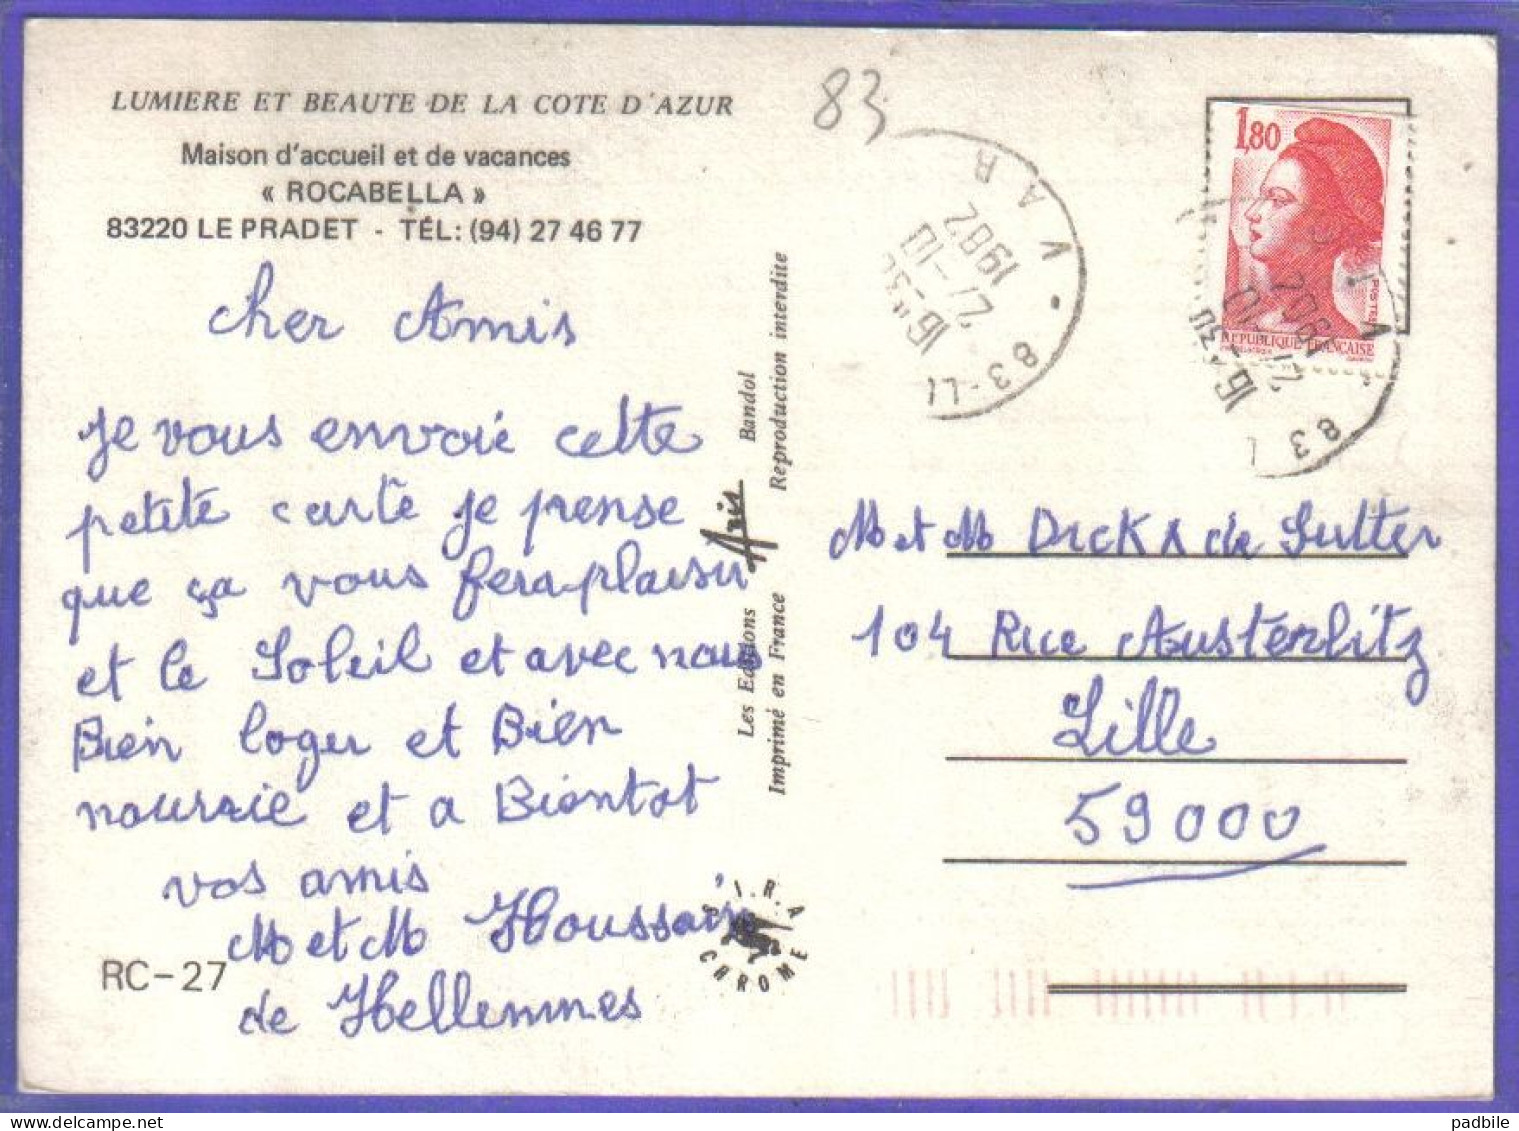 LUMIERE ET BEAUTE DE LA COTE D'AZUR
Maison d'accueil et de vacances
« ROCABELLA »
83220 LE PRADET - TÉL: (94) 27 46 77
cher Amis
Je vous envoie cette
petite carte je pense
que ça vous fera plaisir
et le Soleil et avec nous
Bien loger et Bien
nourrie et a Bientot
vos amis
M et M Houssain
de Hellemmes
RC-27
Les Editions Aris Bandol
Imprimé en France Reproduction interdite
A.I.R.A
CHROME
83
83 - L VAR
16H30
27-10
1982
1,80
POSTES
RÉPUBLIQUE FRANÇAISE
16H30
27-10
1982
83
M et M Dickx de Sutter
104 Rue Austerlitz
Lille
59000
padbile